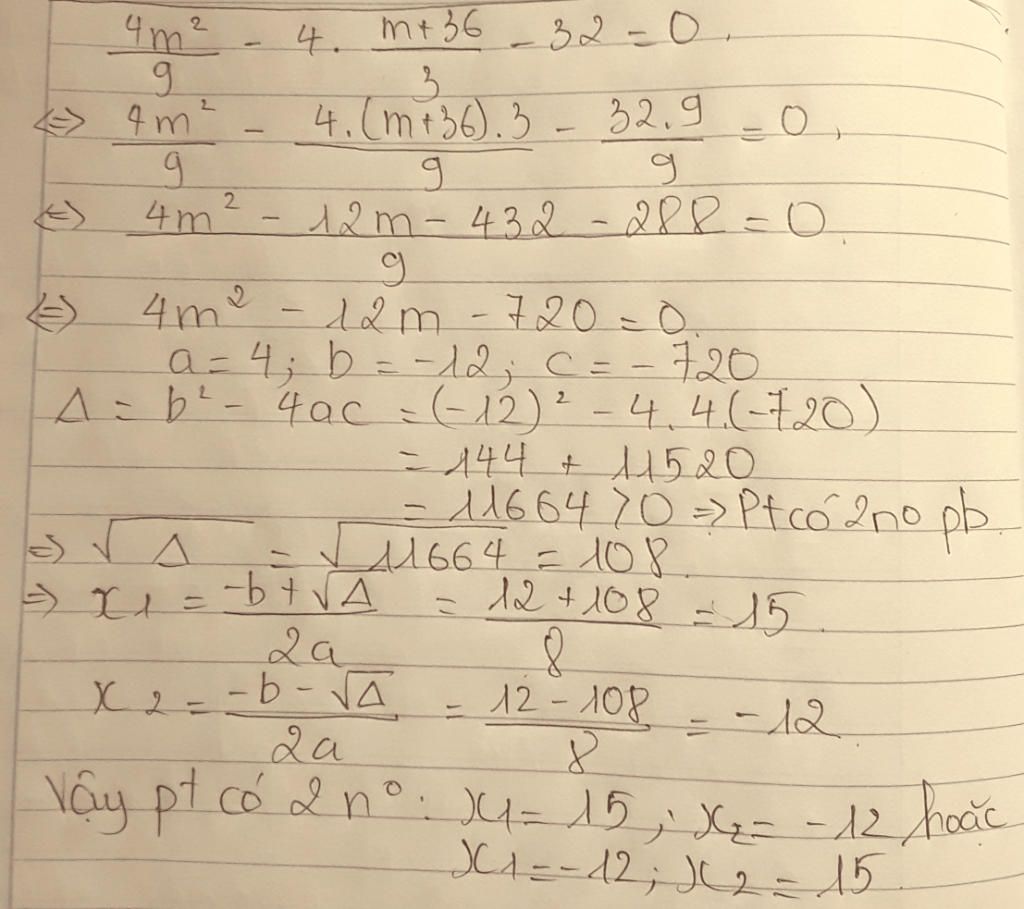 4m²/9 - 4. (m+36)/3 - 32 = 0.
<=> 4m²/9 - 4.(m+36).3/9 - 32.9/9 = 0,
<=> (4m² - 12m - 432 - 288)/9 = 0.
<=> 4m² - 12m - 720 = 0.
a = 4; b = -12; c = -720
Δ = b² - 4ac = (-12)² - 4.4.(-720)
= 144 + 11520
= 11664 > 0 => Pt có 2 no pb.
=> √Δ = √11664 = 108.
=> x1 = (-b + √Δ)/2a = (12 + 108)/8 = 15.
x2 = (-b - √Δ)/2a = (12 - 108)/8 = -12.
Vậy pt có 2 nº: x1 = 15; x2 = -12 hoặc
x1 = -12; x2 = 15.